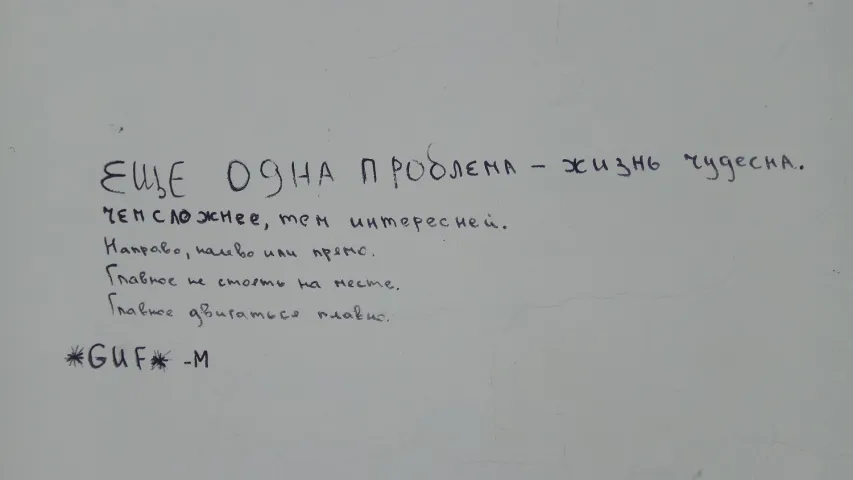 ЕЩЕ ОДНА ПРОБЛЕМА – жизнь чудесна.
чем сложнее, тем интересней.
Направо, налево или прямо.
Главное не стоять на месте.
Главное двигаться плавно.
*GUF* -М